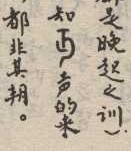 是晚起之训)
知声的来
都非其朝。